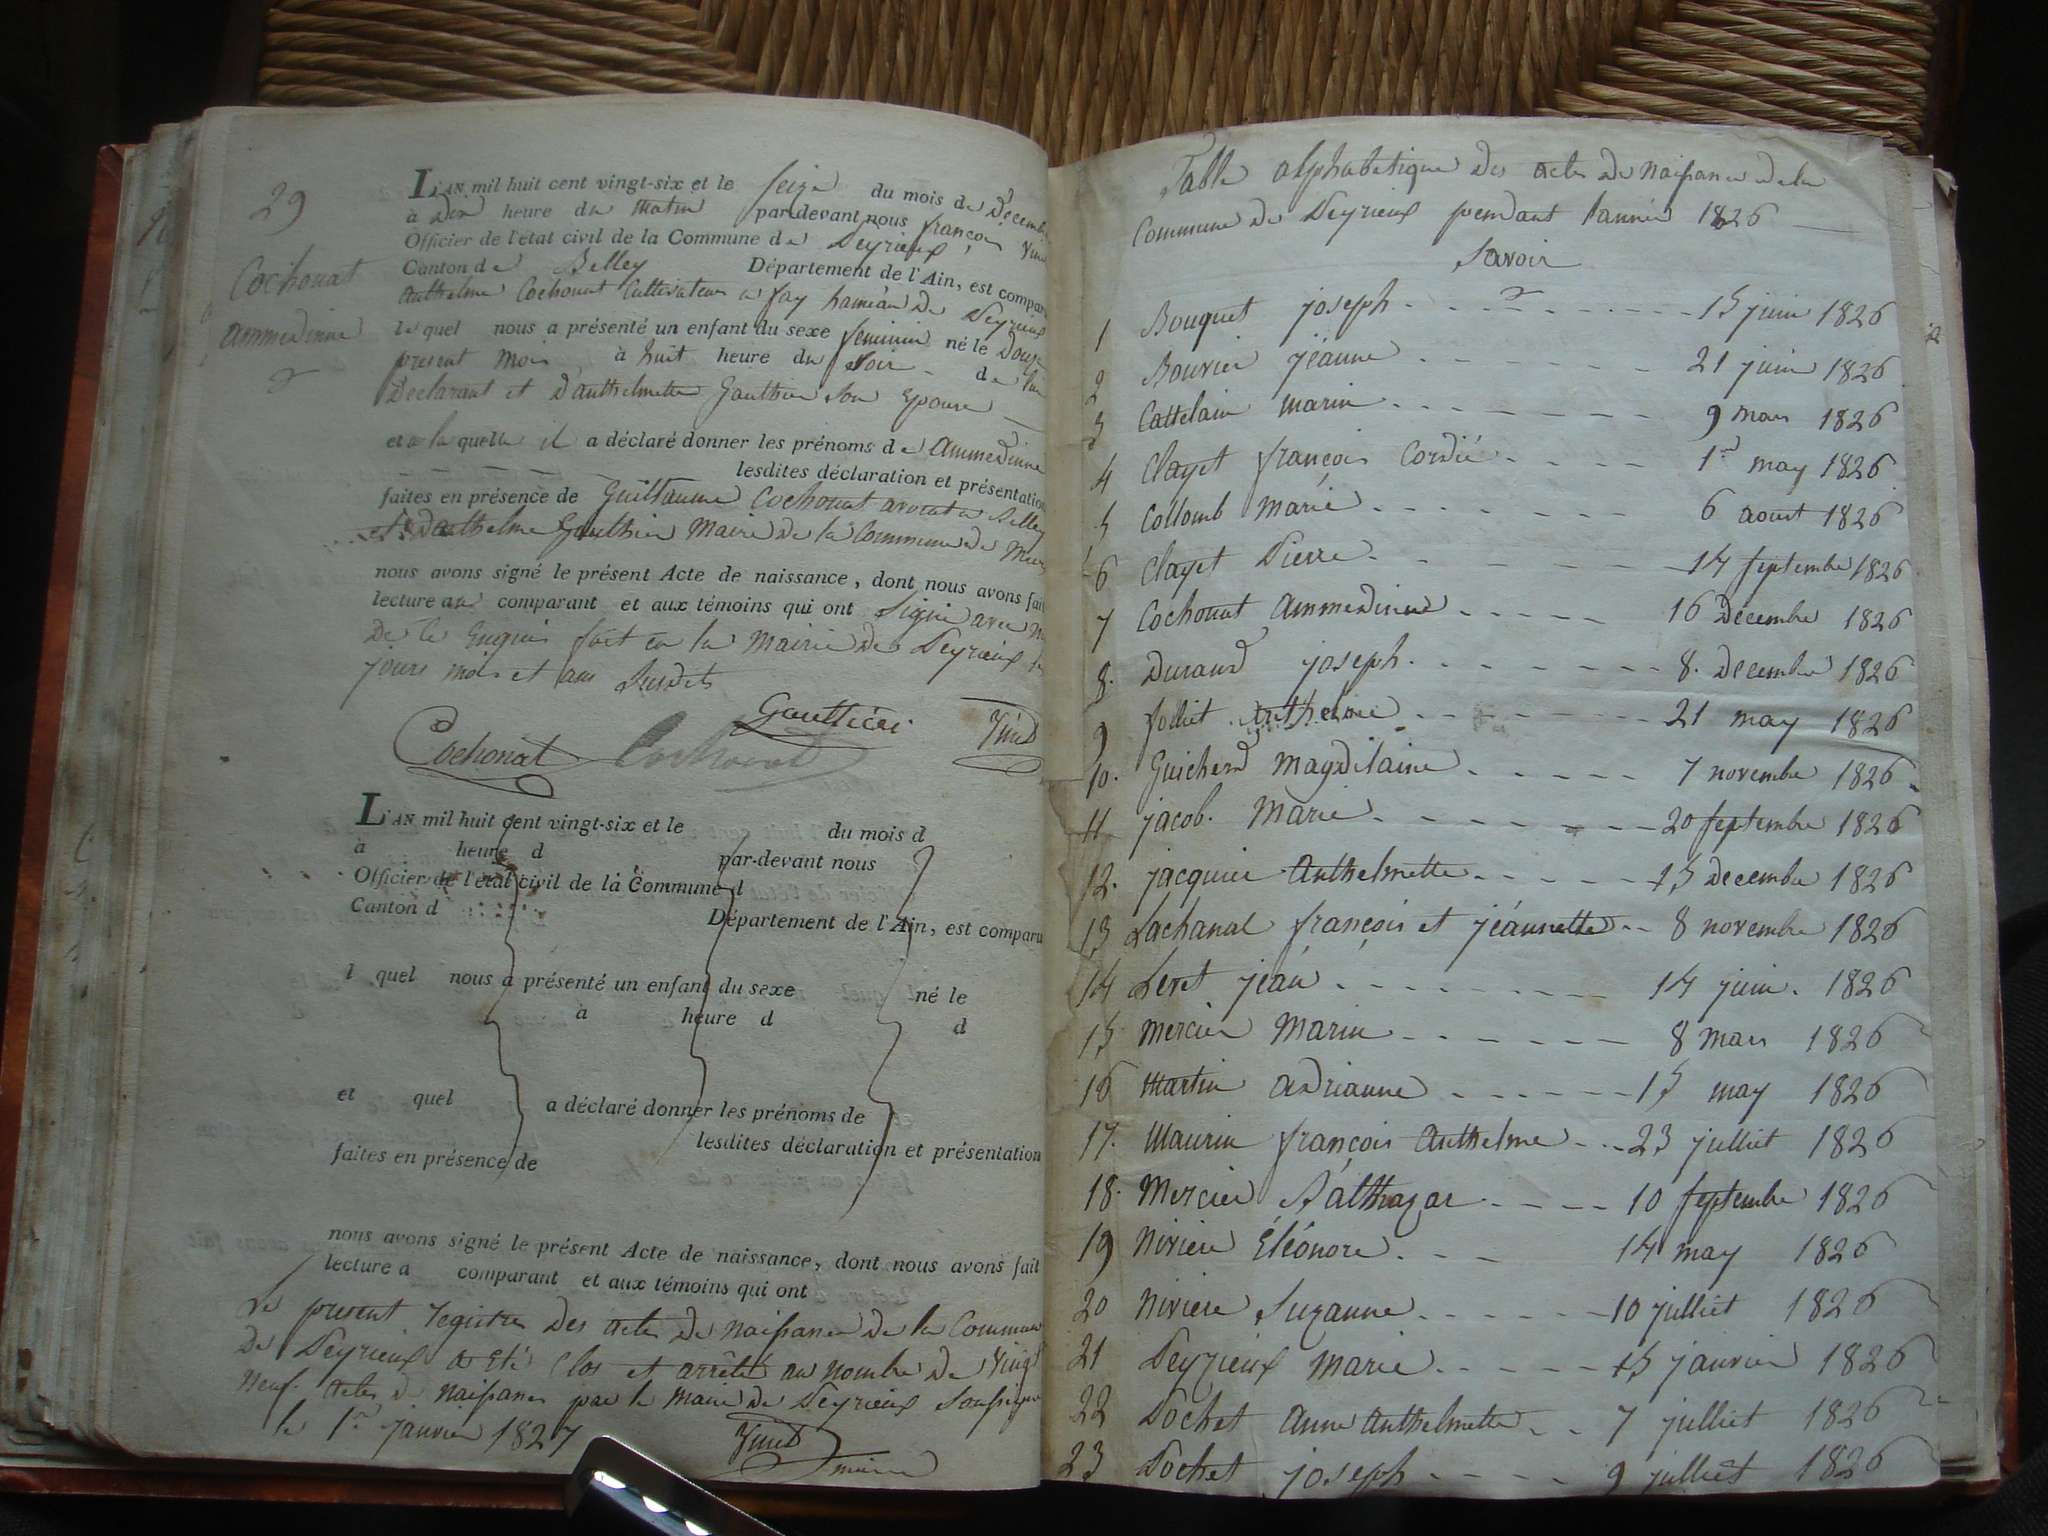 29
Cochonat
ammedinne
L'AN mil huit cent vingt-six et le seize du mois de Decembre
à dix heure du matin par-devant nous françois
Officier de l'état civil de la Commune de Peyrieux
Canton de Belley Département de l'Ain, est comparu
anthelme Cochonat Cultivateur a fay hameau de Peyrieux
le quel nous a présenté un enfant du sexe feminin né le Douze
present mois à huit heure du soir de lui
Declarant et D'anthelmette Gauthier son Epouse
et a la quelle il a déclaré donner les prénoms de ammedinne
lesdites déclaration et présentation
faites en présence de Guillaume Cochonat avocat a Belley
et D'anthelme Gauthier Maire De la Commune de
nous avons signé le présent Acte de naissance, dont nous avons fait
lecture au comparant et aux témoins qui ont signé avec
De ce Enquis fait en la Mairie de Peyrieux les
jours mois et an susdits
Gauthier
Cochonat Cochonat
L'AN mil huit cent vingt-six et le du mois d
à heure d par-devant nous
Officier de l'état civil de la Commune d
Canton d Département de l'Ain, est comparu
l quel nous a présenté un enfant du sexe né le
à heure d d
et quel a déclaré donner les prénoms de
lesdites déclaration et présentation
faites en présence de
nous avons signé le présent Acte de naissance, dont nous avons fait
lecture a comparant et aux témoins qui ont
Le present registre Des actes de naissance De la Commune
De Peyrieux a Eté Clos et arrêté au nombre De Vingt
neuf actes de naissance par le maire De Peyrieux soussigné
le 1er janvier 1827
maire
Table alphabetique Des actes De Naissance dela
Commune de Peyrieux pendant l'année 1826
Savoir
1 Bouquet joseph 15 juin 1826
2 Bouvier jéanne 21 juin 1826
3 Cattelain marin 9 mars 1826
4 Clayet françois Cordié 1er may 1826
5 Collomb Marie 6 aoust 1826
6 Clayet Pierre 14 septembre 1826
7 Cochonat ammedinne 16 Decembre 1826
8. Durand joseph 8. Decembre 1826
9 folliet anthelme 21 may 1826
10. Guicherd Magdelaine 7 novembre 1826
11 jacob. Marie 20 septembre 1826
12. jacquier anthelmette 15 Decembre 1826
13 Lachanal françois et jéannette 8 novembre 1826
14 Peret jéan 14 juin. 1826
15 Mercier Marin 8 Mars 1826
16 Martin adrianne 15 may 1826
17. Maurin françois anthelme 23 julliet 1826
18. Mercier Balthazar 10 septembre 1826
19 Niviere Éléonore 14 may 1826
20 Niviere Suzanne 10 julliet 1826
21 Peyrieux Marie 15 janvier 1826
22 Pochet anne anthelmette 7 julliet 1826
23 Pochet joseph 9 julliet 1826